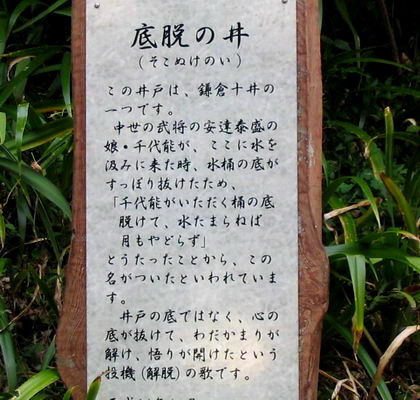 底脱の井
(そこぬけのい)
この井戸は、鎌倉十井の
一つです。
中世の武将の安達泰盛の
娘・千代能が、ここに水を
汲みに来た時、水桶の底が
すっぽり抜けたため、
「千代能がいただく桶の底
脱けて、水たまらねば
月もやどらず」
とうたったことから、この
名がついたといわれていま
す。
井戸の底ではなく、心の
底が抜けて、わだかまりが
解け、悟りが開けたという
投機(解脱)の歌です。